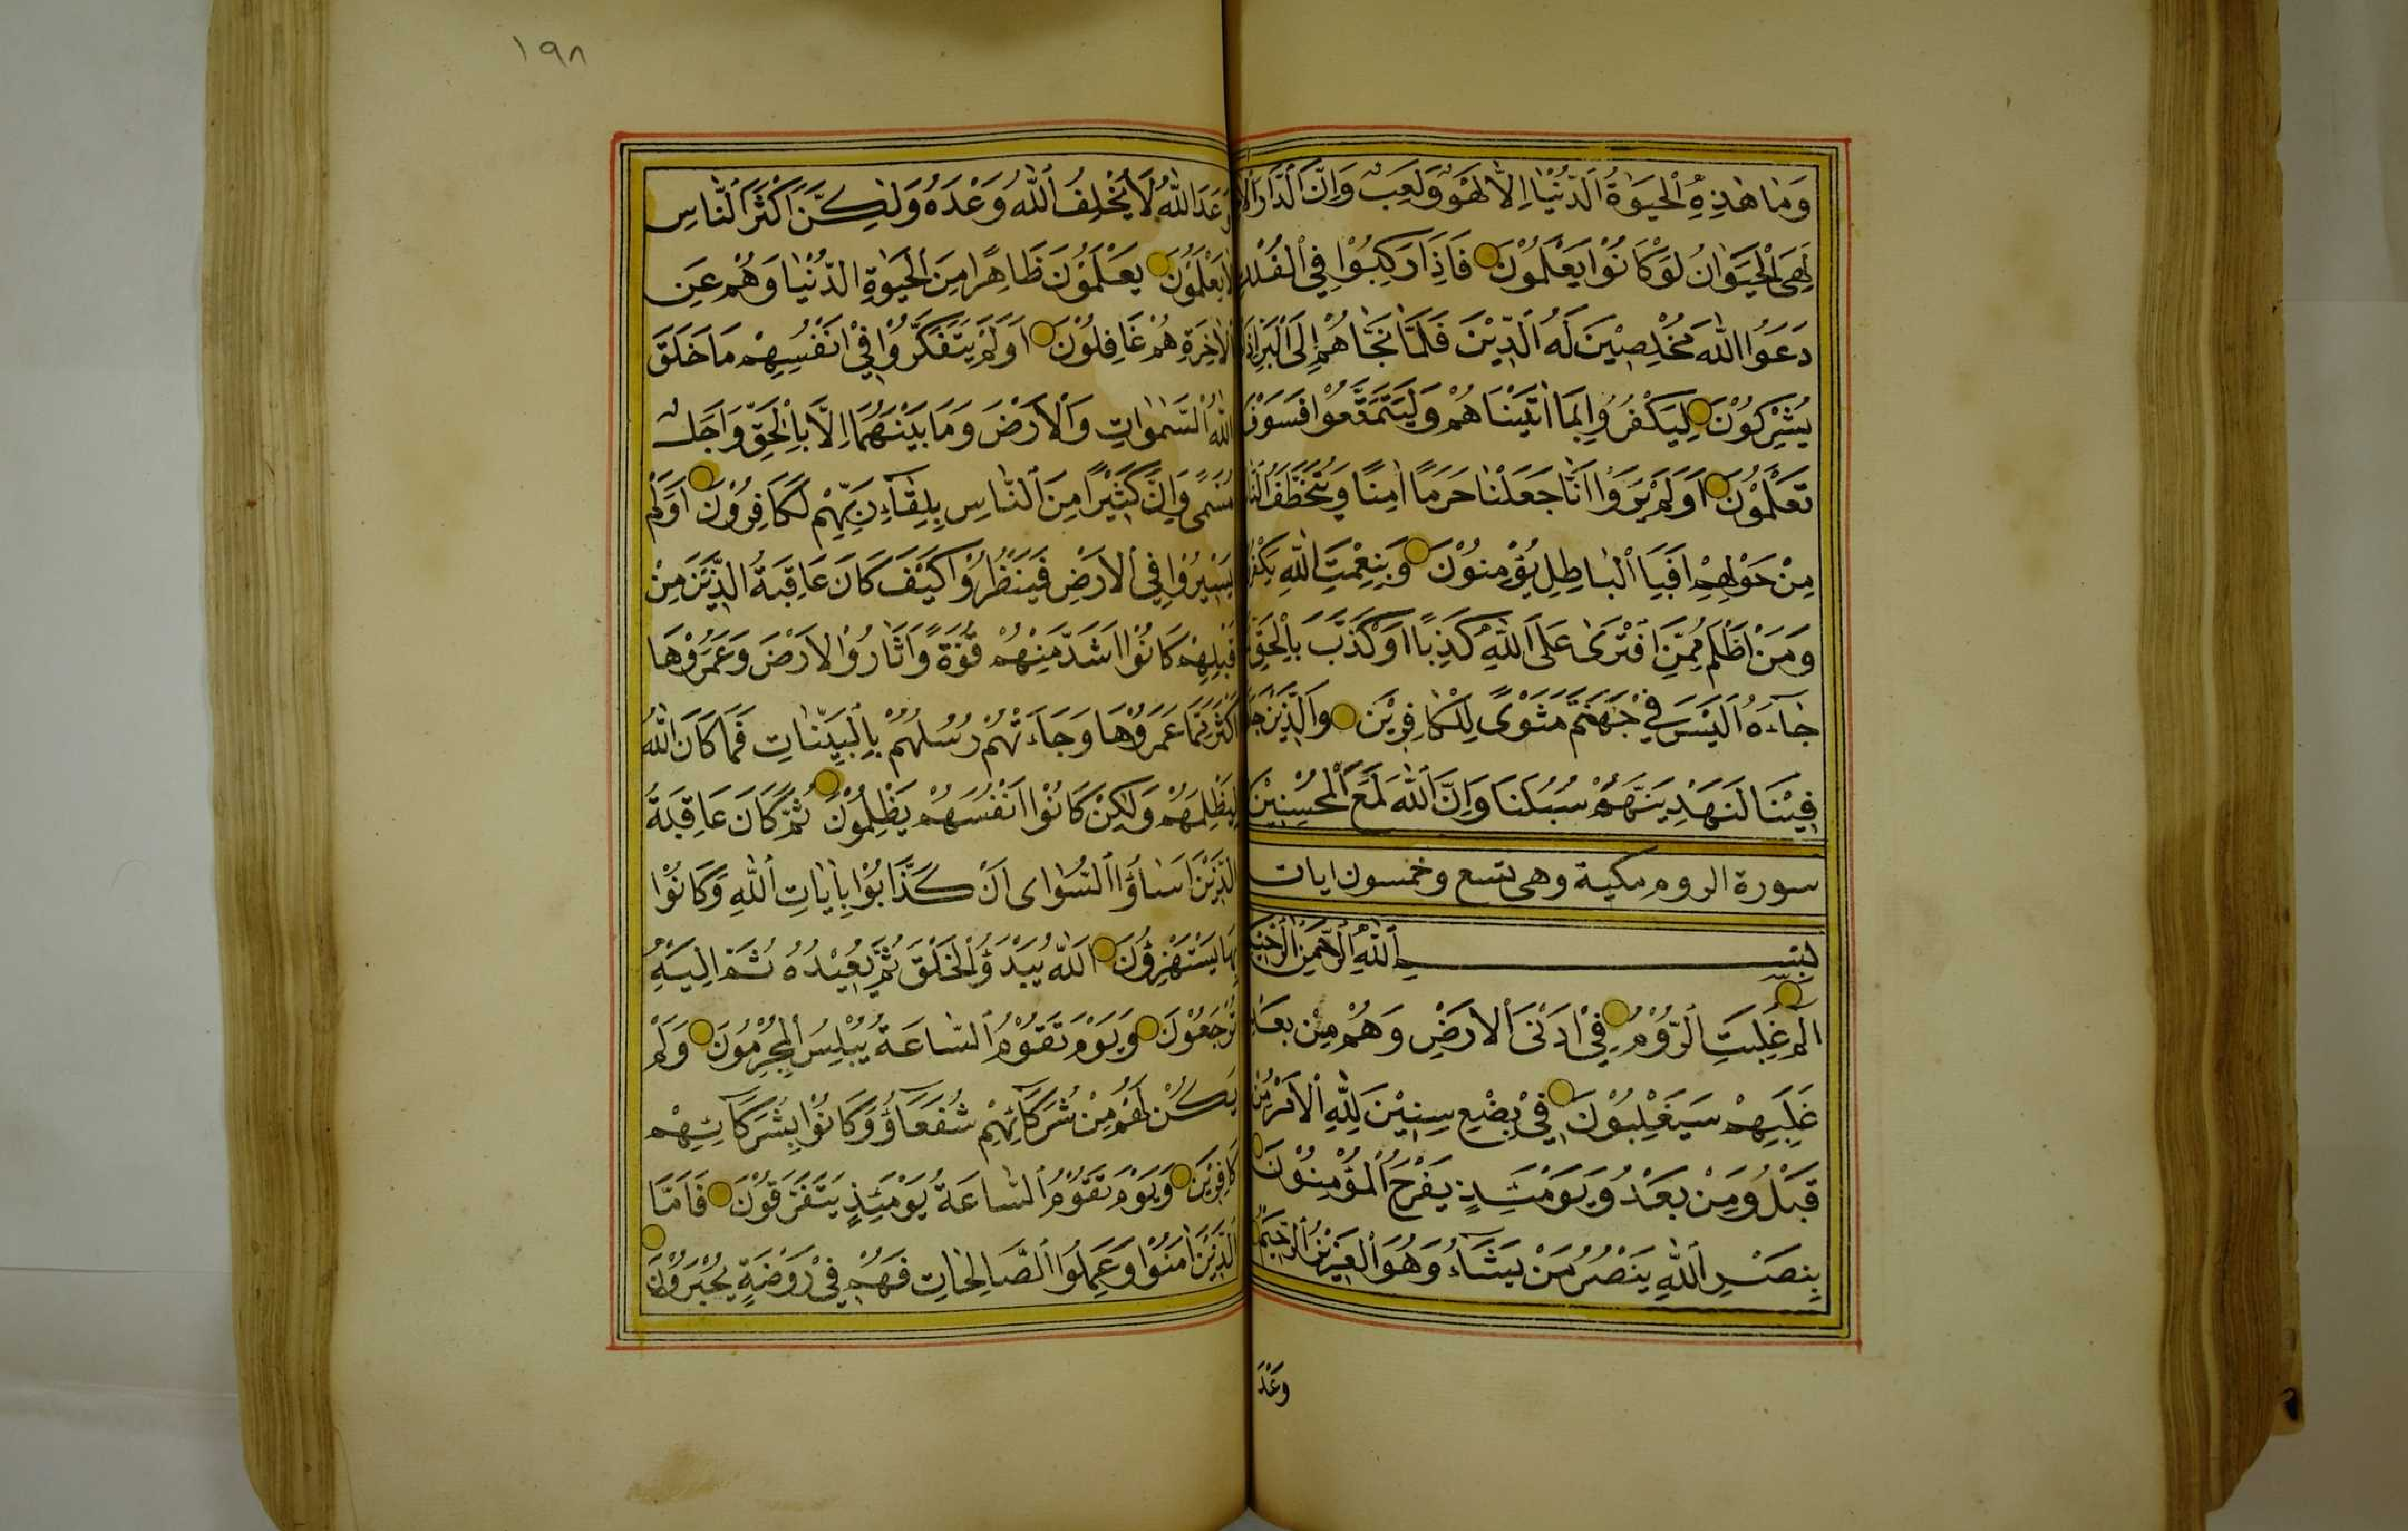 وَمَا هٰذِهِ الْحَيٰوةُ الدُّنْيَا اِلَّا لَهْوٌ وَلَعِبٌ وَاِنَّ الدَّارَ الْا
لَهِيَ الْحَيَوَانُ لَوْ كَانُوْا يَعْلَمُوْنَ فَاِذَا رَكِبُوْا فِي الْفُلْكِ
دَعَوُا اللّٰهَ مُخْلِصِيْنَ لَهُ الدِّيْنَ فَلَمَّا نَجَّاهُمْ اِلَى الْبَرِّ اِذَا
يُشْرِكُوْنَ لِيَكْفُرُوا بِمَا اٰتَيْنَاهُمْ وَلِيَتَمَتَّعُوْا فَسَوْفَ
تَعْلَمُوْنَ اَوَلَمْ يَرَوْا اَنَّا جَعَلْنَا حَرَمًا اٰمِنًا وَيُتَخَطَّفُ النَّا
مِنْ حَوْلِهِمْ اَفَبِا الْبَاطِلِ يُؤْمِنُوْنَ وَبِنِعْمَتِ اللّٰهِ يَكْفُرُ
وَمَنْ اَظْلَمُ مِمَّنِ افْتَرٰى عَلَى اللّٰهِ كَذِبًا اَوْ كَذَّبَ بِالْحَقِّ
جَاءَهُ اَلَيْسَ فِيْ جَهَنَّمَ مَثْوًى لِلْكَافِرِيْنَ وَالَّذِيْنَ جَا
فِيْنَا لَنَهْدِيَنَّهُمْ سُبُلَنَا وَاِنَّ اللّٰهَ لَمَعَ الْمُحْسِنِيْنَ
سورة الروم مكية وهي تسع وخمسون ايات
بِسْمِ اللّٰهِ الرَّحْمٰنِ الرَّحِيْمِ
الٓمٓ غُلِبَتِ الرُّوْمُ فِيْ اَدْنَى الْاَرْضِ وَهُمْ مِنْ بَعْدِ
غَلَبِهِمْ سَيَغْلِبُوْنَ فِيْ بِضْعِ سِنِيْنَ لِلّٰهِ الْاَمْرُ مِنْ
قَبْلُ وَمِنْ بَعْدُ وَيَوْمَئِذٍ يَفْرَحُ الْمُؤْمِنُوْنَ
بِنَصْرِ اللّٰهِ يَنْصُرُ مَنْ يَشَاءُ وَهُوَ الْعَزِيْزُ الرَّحِيْمُ
وَعْدَ
١٩٨
وَعْدَ اللّٰهِ لَا يُخْلِفُ اللّٰهُ وَعْدَهُ وَلٰكِنَّ اَكْثَرَ النَّاسِ
لَا يَعْلَمُوْنَ يَعْلَمُوْنَ ظَاهِرًا مِنَ الْحَيٰوةِ الدُّنْيَا وَهُمْ عَنِ
الْاٰخِرَةِ هُمْ غَافِلُوْنَ اَوَلَمْ يَتَفَكَّرُوْا فِيْ اَنْفُسِهِمْ مَا خَلَقَ
اللّٰهُ السَّمٰوَاتِ وَالْاَرْضَ وَمَا بَيْنَهُمَا اِلَّا بِالْحَقِّ وَاَجَلٍ
مُسَمًّى وَاِنَّ كَثِيْرًا مِنَ النَّاسِ بِلِقَاءِ رَبِّهِمْ لَكَافِرُوْنَ اَوَلَمْ
يَسِيْرُوْا فِي الْاَرْضِ فَيَنْظُرُوْا كَيْفَ كَانَ عَاقِبَةُ الَّذِيْنَ مِنْ
قَبْلِهِمْ كَانُوْا اَشَدَّ مِنْهُمْ قُوَّةً وَاَثَارُوْا الْاَرْضَ وَعَمَرُوْهَا
اَكْثَرَ مِمَّا عَمَرُوْهَا وَجَاءَتْهُمْ رُسُلُهُمْ بِالْبَيِّنَاتِ فَمَا كَانَ اللّٰهُ
لِيَظْلِمَهُمْ وَلٰكِنْ كَانُوْا اَنْفُسَهُمْ يَظْلِمُوْنَ ثُمَّ كَانَ عَاقِبَةُ
الَّذِيْنَ اَسَاؤُا السُّوْاى اَنْ كَذَّبُوْا بِاٰيَاتِ اللّٰهِ وَكَانُوْا
بِهَا يَسْتَهْزِؤُنَ اَللّٰهُ يَبْدَؤُا الْخَلْقَ ثُمَّ يُعِيْدُهُ ثُمَّ اِلَيْهِ
تُرْجَعُوْنَ وَيَوْمَ تَقُوْمُ السَّاعَةُ يُبْلِسُ الْمُجْرِمُوْنَ وَلَمْ
يَكُنْ لَهُمْ مِنْ شُرَكَائِهِمْ شُفَعَاؤُ وَكَانُوْا بِشُرَكَائِهِمْ
كَافِرِيْنَ وَيَوْمَ تَقُوْمُ السَّاعَةُ يَوْمَئِذٍ يَتَفَرَّقُوْنَ فَاَمَّا
الَّذِيْنَ اٰمَنُوْا وَعَمِلُوا الصَّالِحَاتِ فَهُمْ فِيْ رَوْضَةٍ يُحْبَرُوْنَ